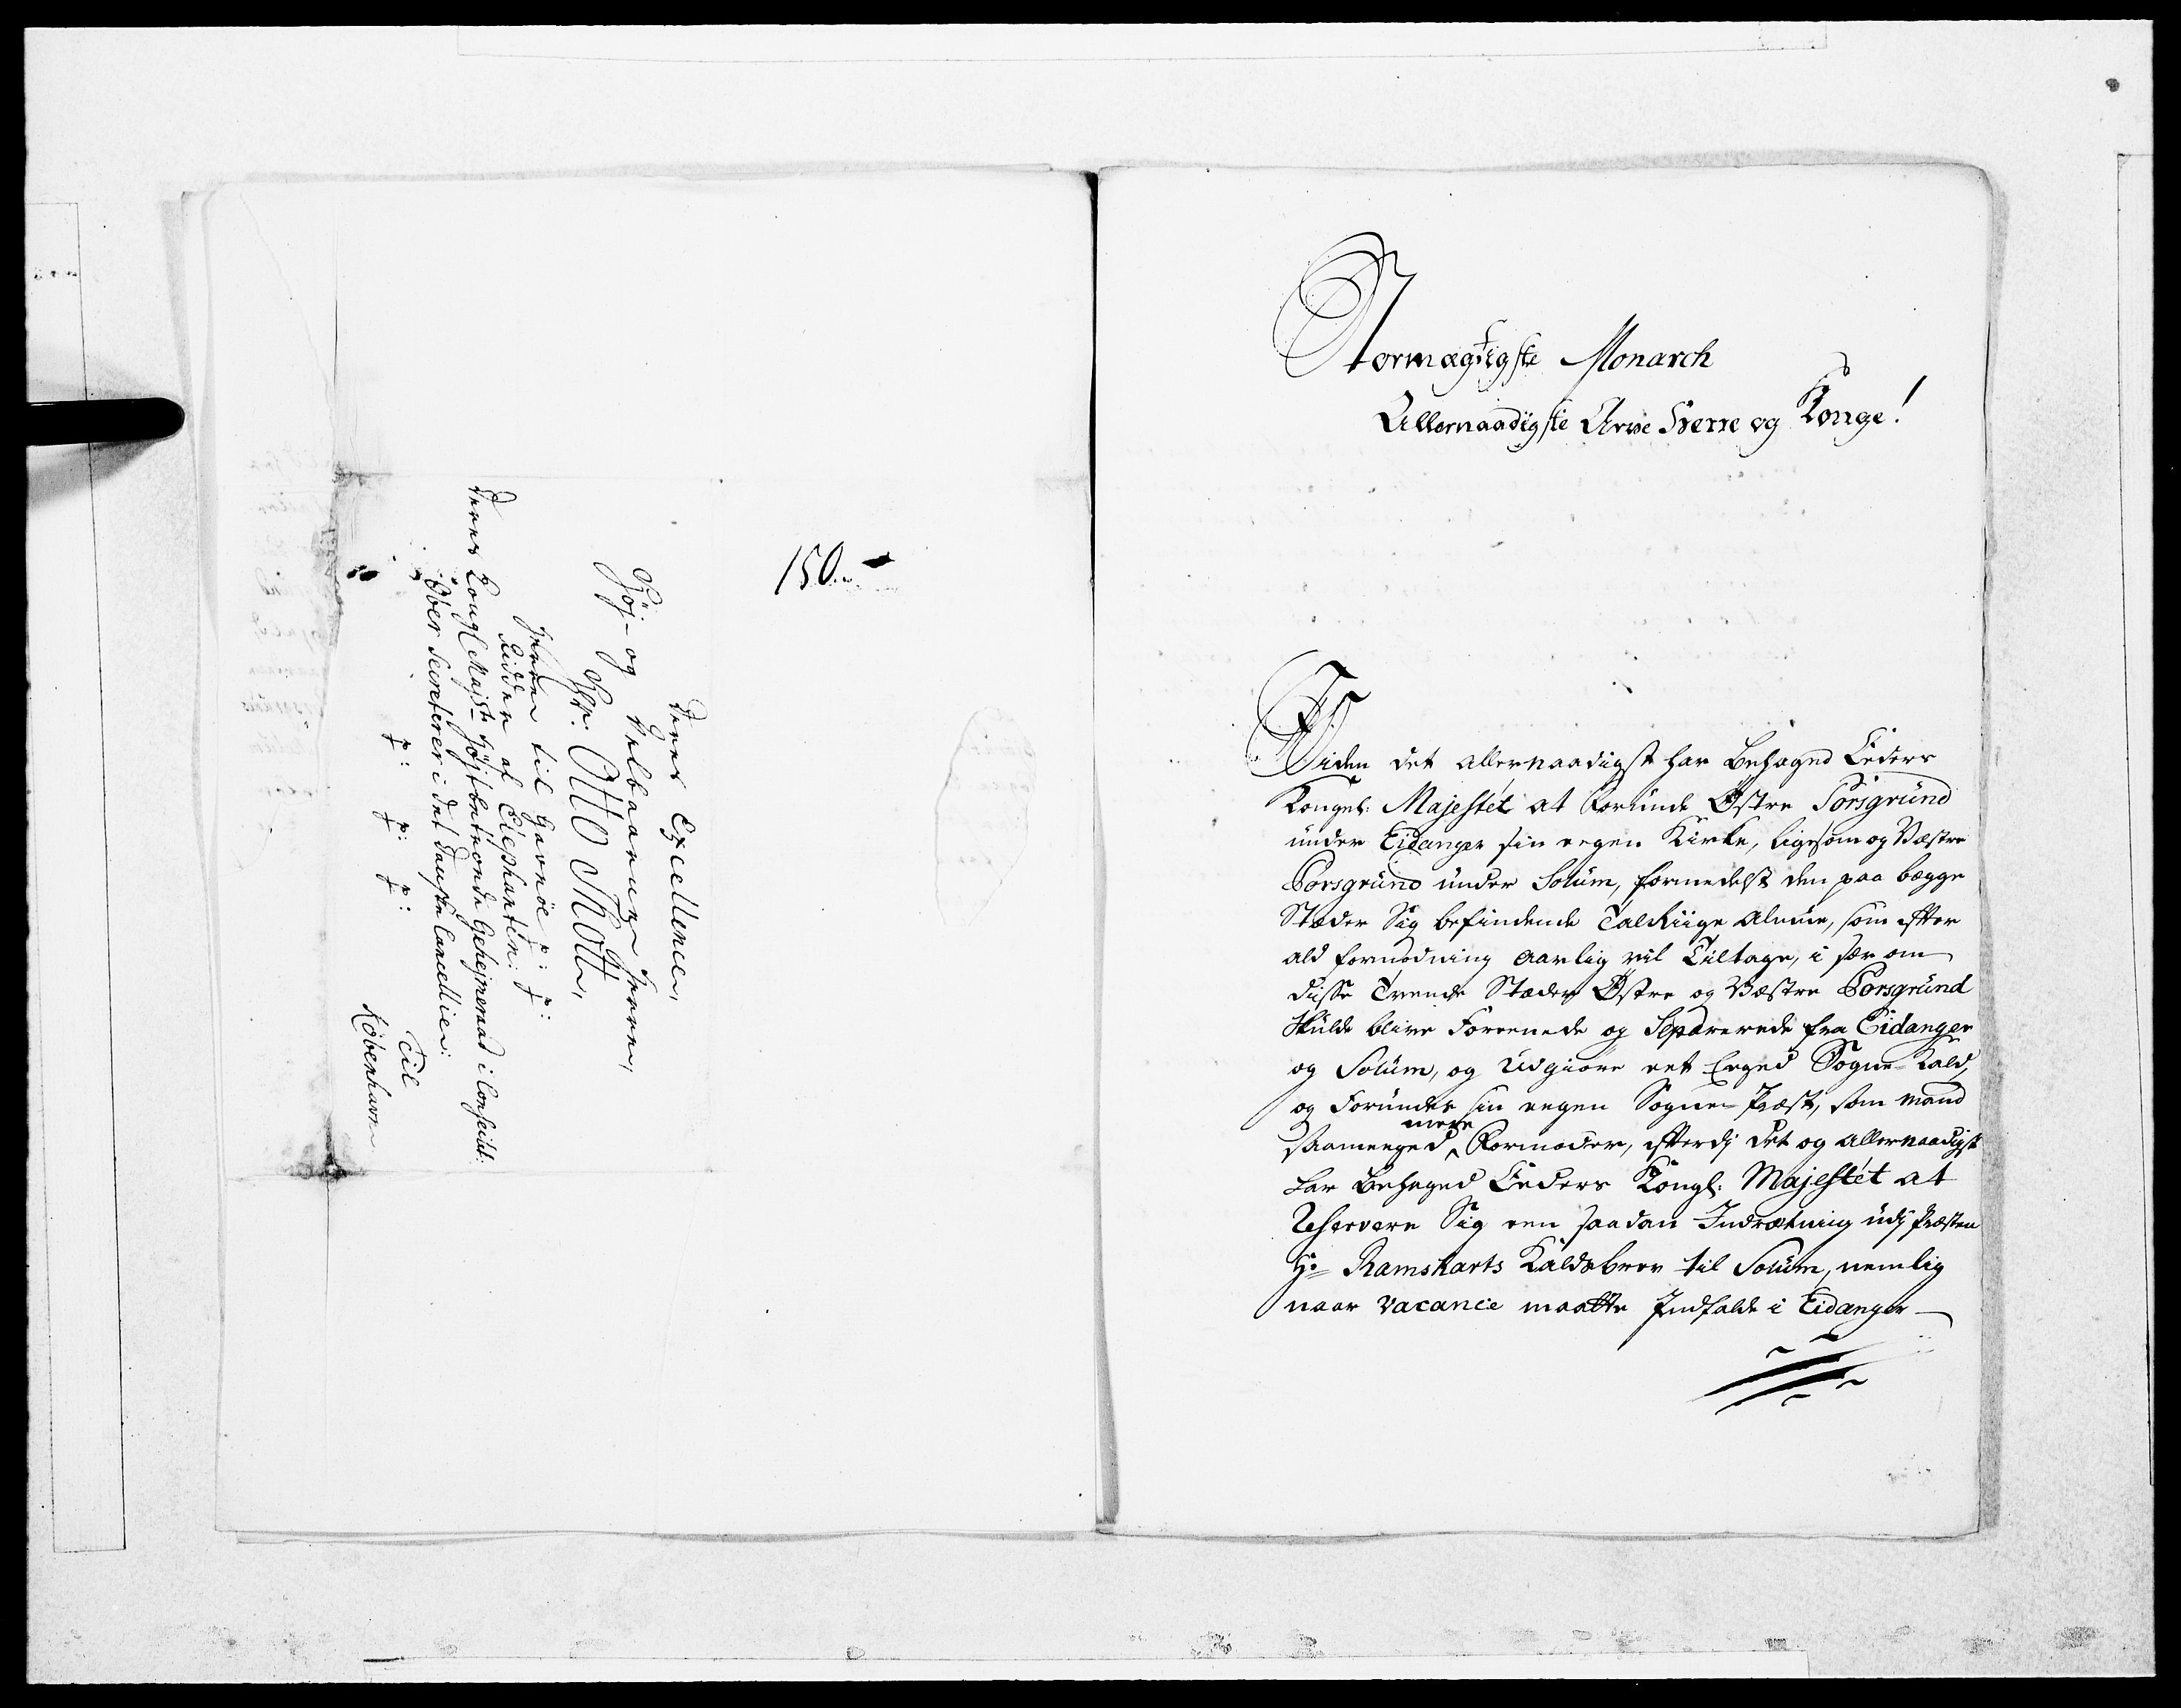 150.
Deres Excellence,
Høj- og Velbaarene Herre,
Hr: Otto Thott,
Herre til Gavnöe p: p:
Ridder af Elephanten:
Deres Kongl Majsts højbetroede Gehejmeraad i Conseilet:
Ober Secreterer i det Danske Cancellie:
p: p: p:
Til
Köbenhavn
Stormægtigste Monarch
Allernaadigste Arve Herre og Konge!
Siden det allernaadigst har behaged Eeders
Kongel: Majestét at forunde Østre Porsgrund
under Eidanger sin eegen Kirke, ligesom og Væstre
Porsgrund under Solum, formedelst den paa begge
Stæder Sig befindende Talriige Almue, som efter
ald formodning aarlig vil Tiltage, i sær om
disse Tvende Stæder Østre og Væstre Porsgrund
skulde blive Foreenede og Separerede fra Eidanger
og Solum, og Udgiøre eet Eeged Sogne-Kald,
og Forundes sin eegen Sogne-Præst, som mand
saameeged mere Formoder, efterdj det og allernaadigst
har behaged Eeders Kongl: Majestét at
Reservere Sig een saadan Indrætning udj Præsten
Hr Ramsharts Kaldsbrev til Solum, nemlig
naar vacance maatte Indfalde i Eidanger